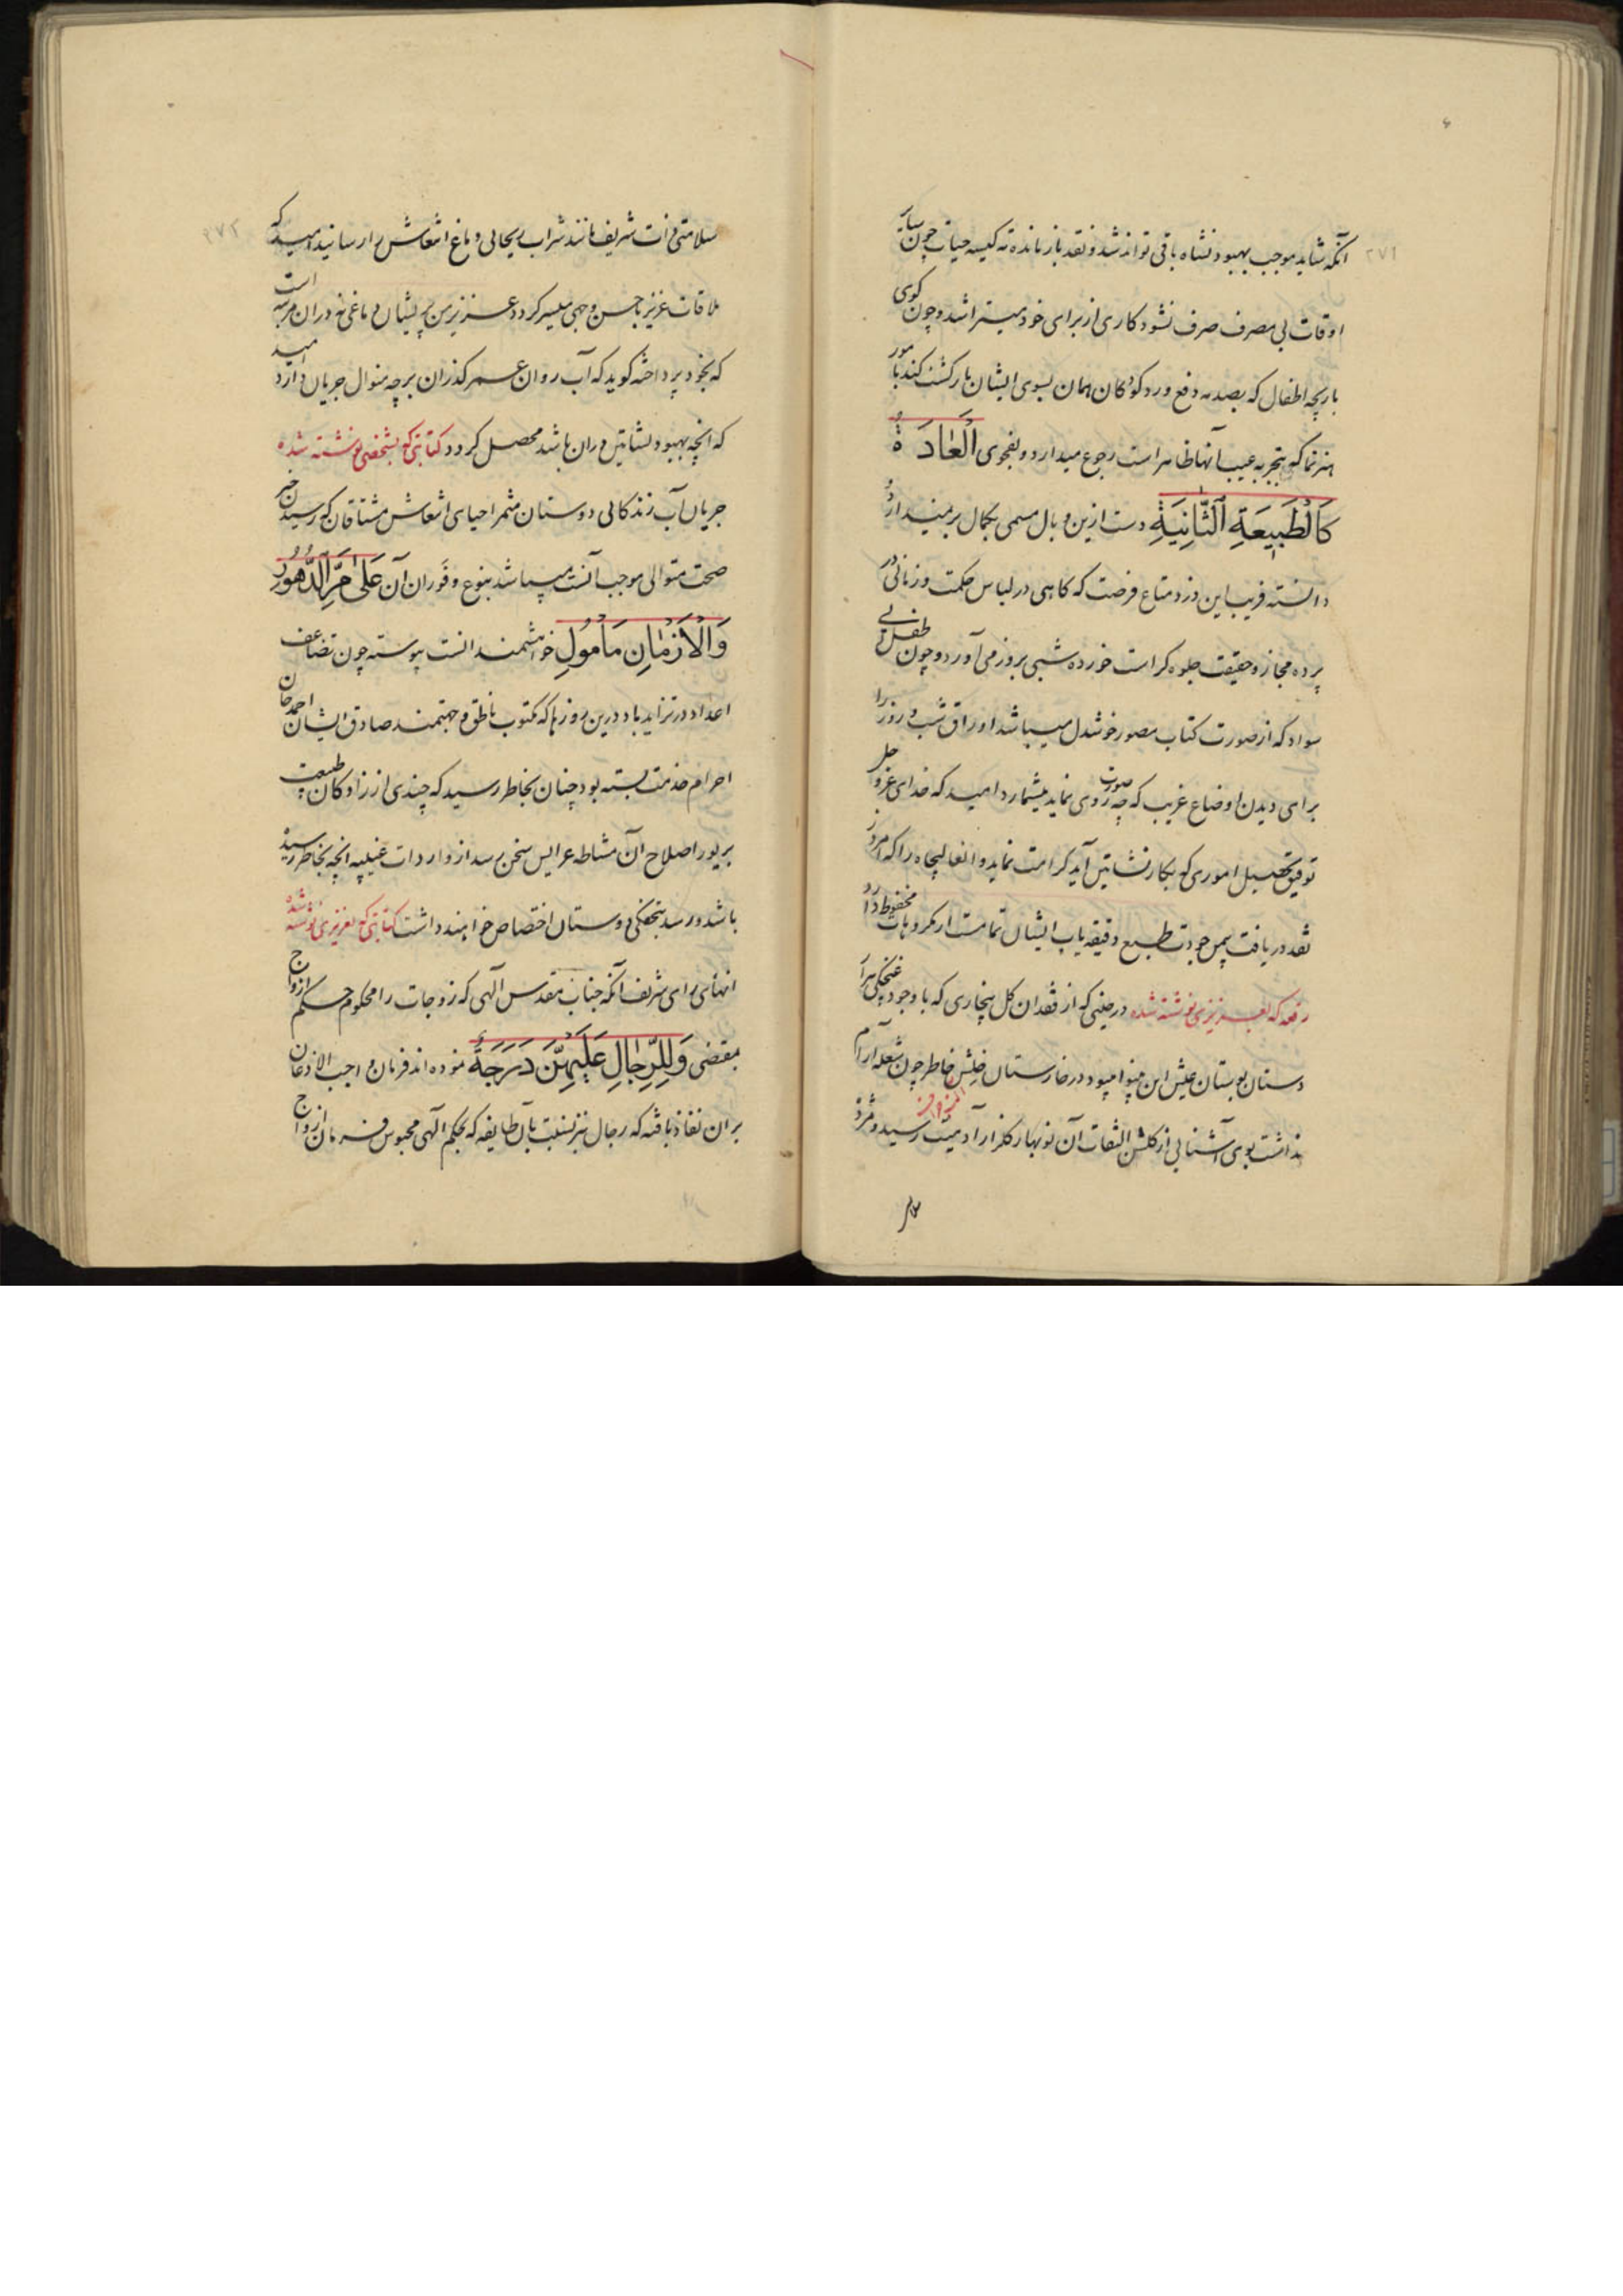 ۲۷۱
آنکه شاید موجب بهبود نشاه باقی تواند شد و نقد باز مانده ته کیسه حیات چون سایر
اوقات بی مصرف صرف نشود کاری از برای خود میتراشد و چون گوی
بازیچه اطفال که بصدمه دفع و رد کودکان همان بسوی ایشان بازگشت کند با مور
هنرنما که بتجربه عیب آنها ظاهر است رجوع میدارد و بفحوی اَلْعٰادَةُ
کَالطَّبِیعَةِ الثّٰانِیَةِ دست ازین وبال مسمی بکمال برنمیدارد
دانسته فریب این دزد متاع فرصت که کاهی در لباس حکمت و زمانی در
پرده مجاز و حقیقت جلوه کر است خورده شبی بروز می آورد و چون طفل بی
سواد که از صورت کتاب مصور خوشدل میباشد اوراق شب و روز را
برای دیدن اوضاع غریب که چه صورت روی نماید میشمارد امید که خدای عز و جل
توفیق تحصیل اموری که بکار نشاتین آید کرامت نماید و انعالیجاه را که امروز
نقد دریافت بیمن جودت طبع دقیقه یاب ایشان تمامست از مکروهات محفوظ دارد
رقعه که بعزیزی نوشته شده در حینی که از فقدان کل بیخاری که با وجود غنچکی هزار
دستان بوستان عیش این بینوا میبود در خارستان خلش خاطر چون شعله آرام
نداشت بوی آشنایی از کلشن التفات آن نوبهار کلزار آدمیت رسید و مژده
۲۷۲
سلامتی ذات شریف مانند شراب ریحانی دماغ انتعاش را رسانید امید که
ملاقات عزیز باحسن وجهی میسر کردد عزیز من پریشان دماغی نه در ان مرتبه است
که بخود پرداخته کوید که آب روان عمر کذران بر چه منوال جریان دارد امید
که انچه بهبود نشاتین دران باشد محصل کردد کتابتی که بشخصی نوشته شده
جریان آب زندکانی دوستان مثمر احیای انتعاش مشتاقان که رسیدن خبر
صحت متوالی موجب آنست میباشد ینبوع و فوران آن عَلٰی مَرِّ الدُّهُورِ
وَالْاَزْمٰانِ مَأْمُولِ خواهشمند انست پیوسته چون تضاعف
اعداد در تزاید باد درین روزها که مکتوب ناطق و جهتمند صادق ایشان احمد خان
احرام خدمت بسته بود چنان بخاطر رسید که چندی از زادکان طبیعت
بزیور اصلاح آن مشاطه عرایس سخن برسد از واردات غیبیه انچه بخاطر رسیده
باشد و رسد بتحفکی دوستان اختصاص خواهند داشت کتابتی که بعزیزی نوشته شده
انهای رای شریف آنکه جناب مقدس آلهی که زوجات را محکوم حکم ازواج
بمقتضی وَلِلرِّجٰالِ عَلَیْهِنَّ دَرَجَةٌ نموده اند فرمان واجب الاذعان
بران نفاذ یافته که رجال نیز نسبت بآن طایفه که بحکم آلهی محبوس فرمان ازواج